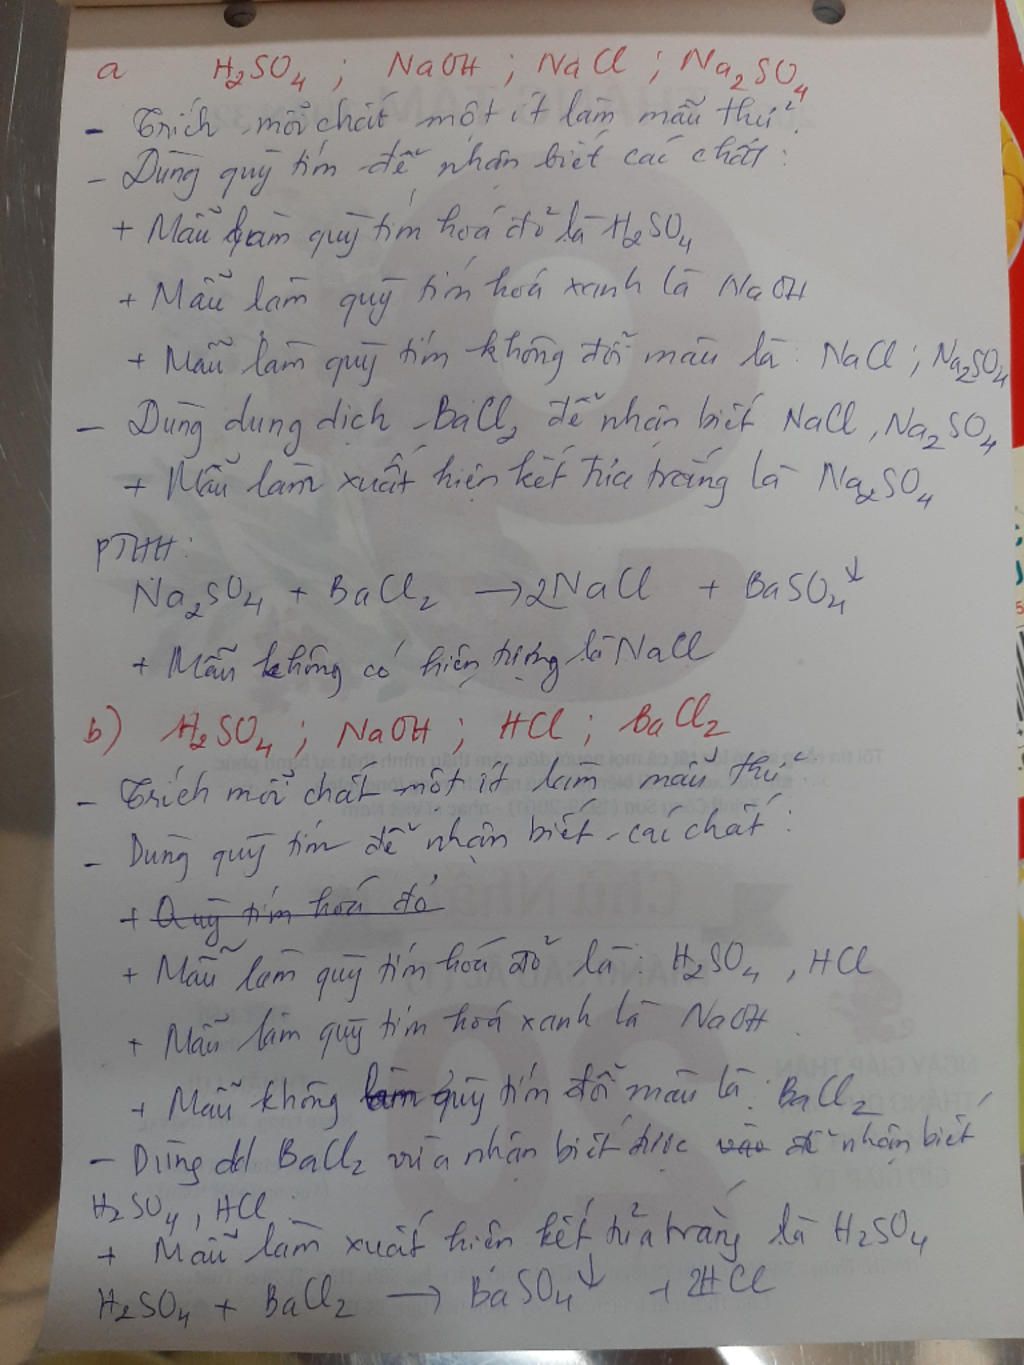 a H₂SO₄ ; NaOH ; NaCl ; Na₂SO₄
- Trích mỗi chất một ít làm mẫu thử.
- Dùng quỳ tím để nhận biết các chất :
+ Mẫu làm quỳ tím hoá đỏ là H₂SO₄
+ Mẫu làm quỳ tím hoá xanh là NaOH
+ Mẫu làm quỳ tím không đổi màu là : NaCl ; Na₂SO₄
- Dùng dung dịch BaCl₂ để nhận biết NaCl , Na₂SO₄
+ Mẫu làm xuất hiện kết tủa trắng là Na₂SO₄
PTHH :
Na₂SO₄ + BaCl₂ → 2NaCl + BaSO₄↓
+ Mẫu không có hiện tượng là NaCl
b) H₂SO₄ ; NaOH ; HCl ; BaCl₂
- Trích mỗi chất một ít làm mẫu thử
- Dùng quỳ tím để nhận biết các chất :
+ Quỳ tím hoá đỏ
+ Mẫu làm quỳ tím hoá đỏ là : H₂SO₄ , HCl
+ Mẫu làm quỳ tím hoá xanh là NaOH
+ Mẫu không làm quỳ tím đổi màu là : BaCl₂
- Dùng dd BaCl₂ vừa nhận biết được vào để nhận biết
H₂SO₄ , HCl
+ Mẫu làm xuất hiện kết tủa trắng là H₂SO₄
H₂SO₄ + BaCl₂ → BaSO₄↓ + 2HCl